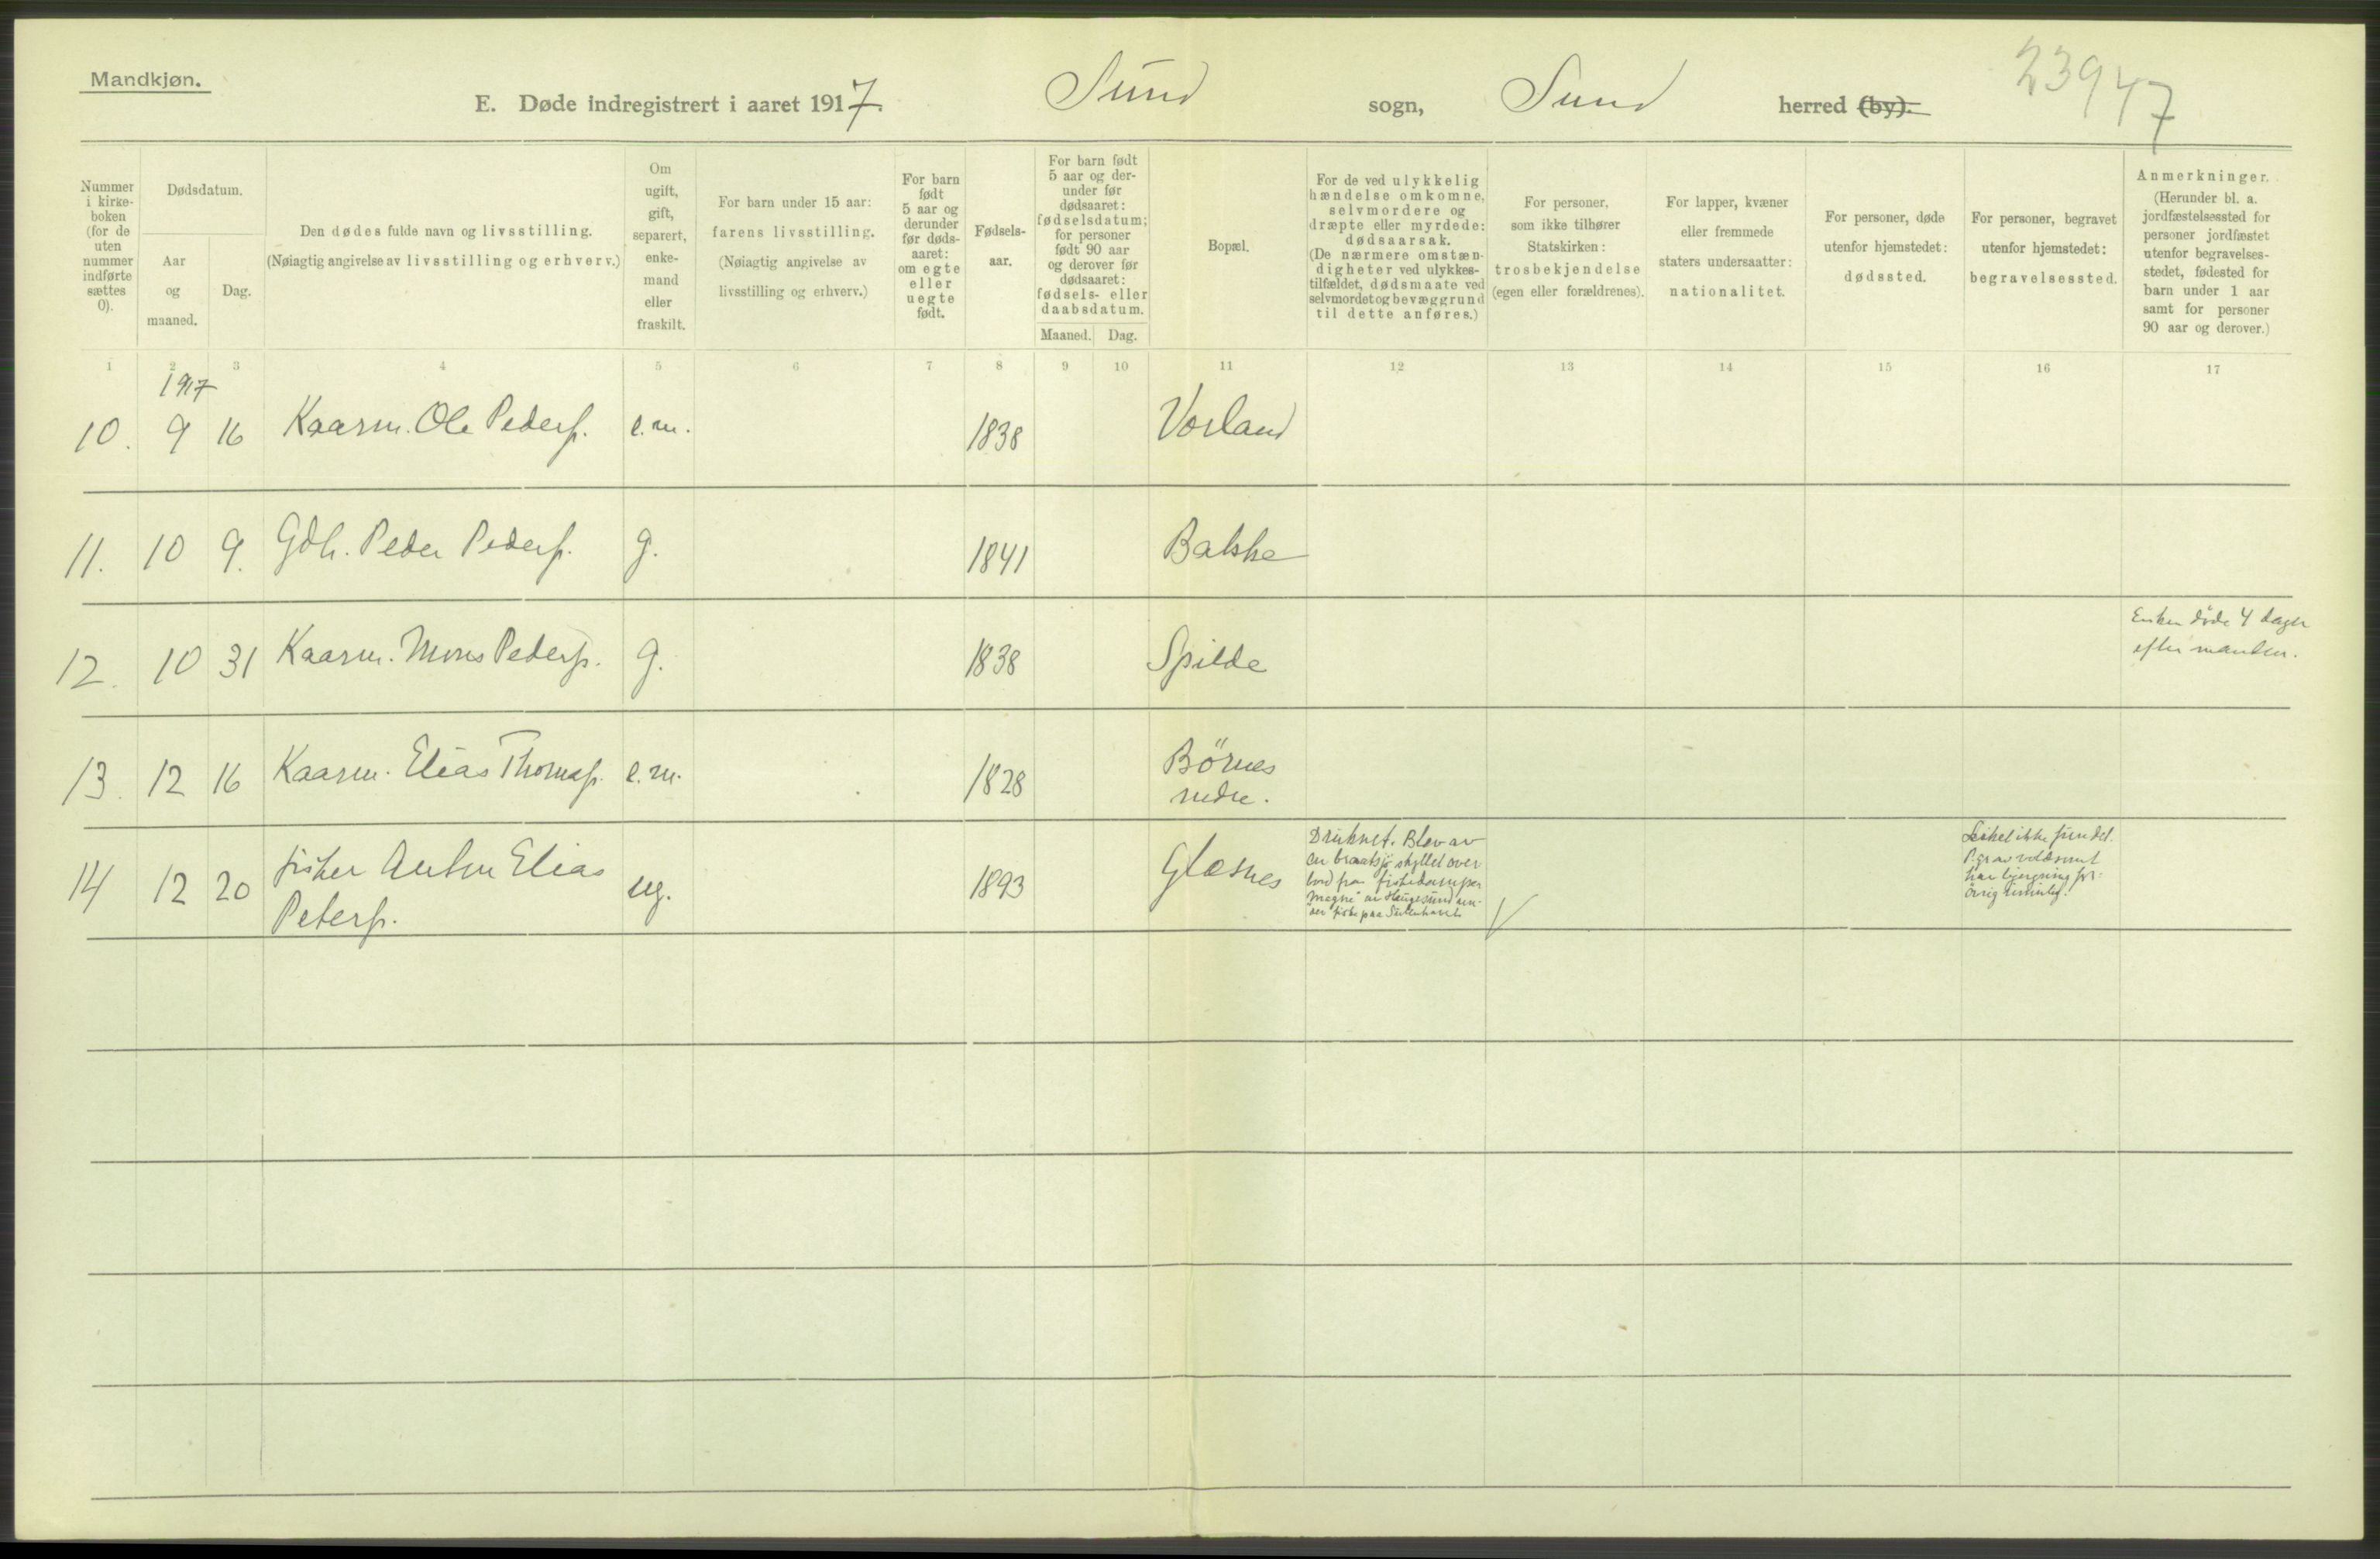 Mandkjøn.
E. Døde indregistrert i aaret 1917. Sund sogn, Sund herred (by).
23947
Nummer i kirke- boken (for de uten nummer indførte sættes 0).
Dødsdatum.
Aar og maaned.
Dag.
Den dødes fulde navn og livsstilling.
(Nøiagtig angivelse av livsstilling og erhverv.)
Om ugift, gift, separert, enke- mand eller fraskilt.
For barn under 15 aar:
farens livsstilling.
(Nøiagtig angivelse av
livsstilling og erhverv.)
For barn født 5 aar og derunder før døds- aaret: om egte eller uegte født.
Fødsels- aar.
For barn født 5 aar og der- under før dødsaaret: fødselsdatum; for personer født 90 aar og derover før dødsaaret: fødsels- eller daabsdatum.
Maaned. Dag.
Bopæl.
For de ved ulykkelig hændelse omkomne, selvmordere og dræpte eller myrdede: dødsaarsak.
(De nærmere omstæn- digheter ved ulykkes- tilfældet, dødsmaate ved selvmordet og bevæggrund til dette anføres.)
For personer, som ikke tilhører Statskirken: trosbekjendelse (egen eller forældrenes).
For lapper, kvæner eller fremmede staters undersaatter: nationalitet.
For personer, døde utenfor hjemstedet: dødssted.
For personer, begravet utenfor hjemstedet: begravelsessted.
Anmerkninger.
(Herunder bl. a. jordfæstelsessted for personer jordfæstet utenfor begravelses- stedet, fødested for barn under 1 aar samt for personer 90 aar og derover.)
1 2 3 4 5 6 7 8 9 10 11 12 13 14 15 16 17
1917
10. 9 16 Kaarm. Ole Peders. e.m. 1838 Vorland
11. 10 9. Gdb. Peder Peders. g. 1841 Bakke
12. 10 31 Kaarm. Mons Peders. g. 1838 Spilde
Enken døde 4 dager
efter manden.
13. 12 16 Kaarm. Elias Thomas. e.m. 1828 Börnes
nedre.
14 12 20 fisker Anton Elias
Peters. ug. 1893 Glesnes
Druknet. Blev av
en braatsjø skyllet over
bord fra fiskedamper
"Magne" av Haugesund un-
der fiske paa
Liket ikke fundet.
P.gr. av voldsomt
hav bjergning for-
övrig umulig.